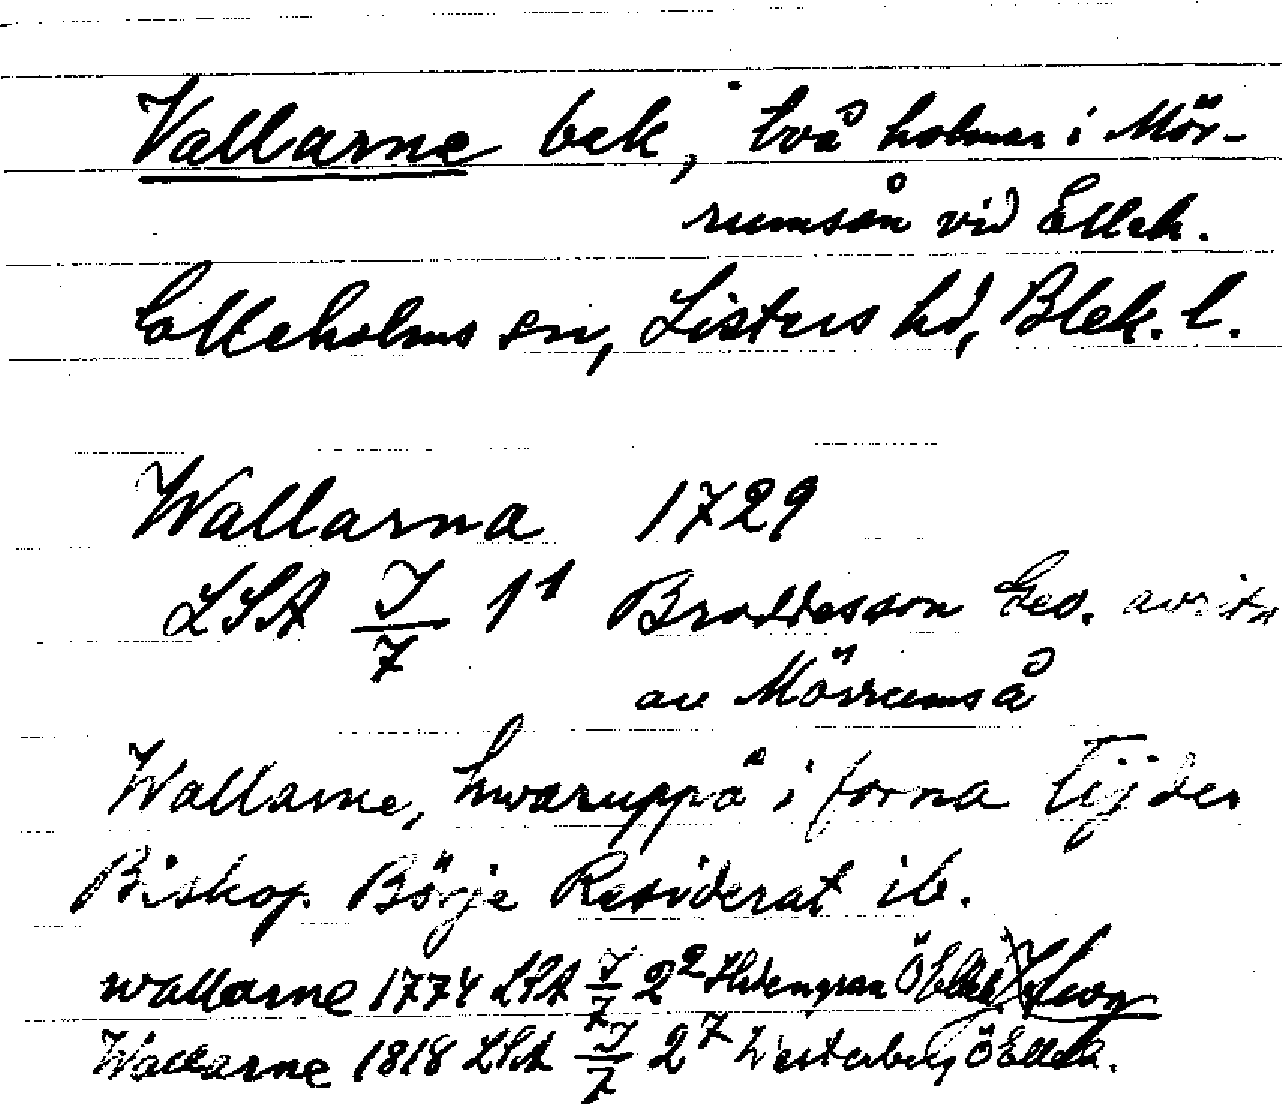 Vallarne bek, två holmar i Mör-
rumsån vid Ellek.
Elleholms sn, Listers hd, Blek. l.
Wallarna 1729
LSA J/7 1¹ Broddesson Geo. avritn
av Mörrumså
Wallarne, hwaruppå i forna tijder
Biskop Börje Residerat ib.
Wallarne 1774 LSA J/7 2²
Wallarne 1818 LSA J/7 2⁷ Westerberg Ö Elleh.